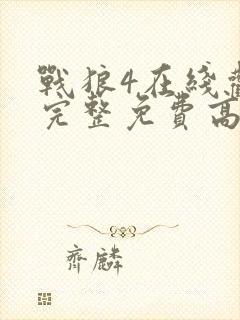 戰狼4在綫
完整免費高
齊麟